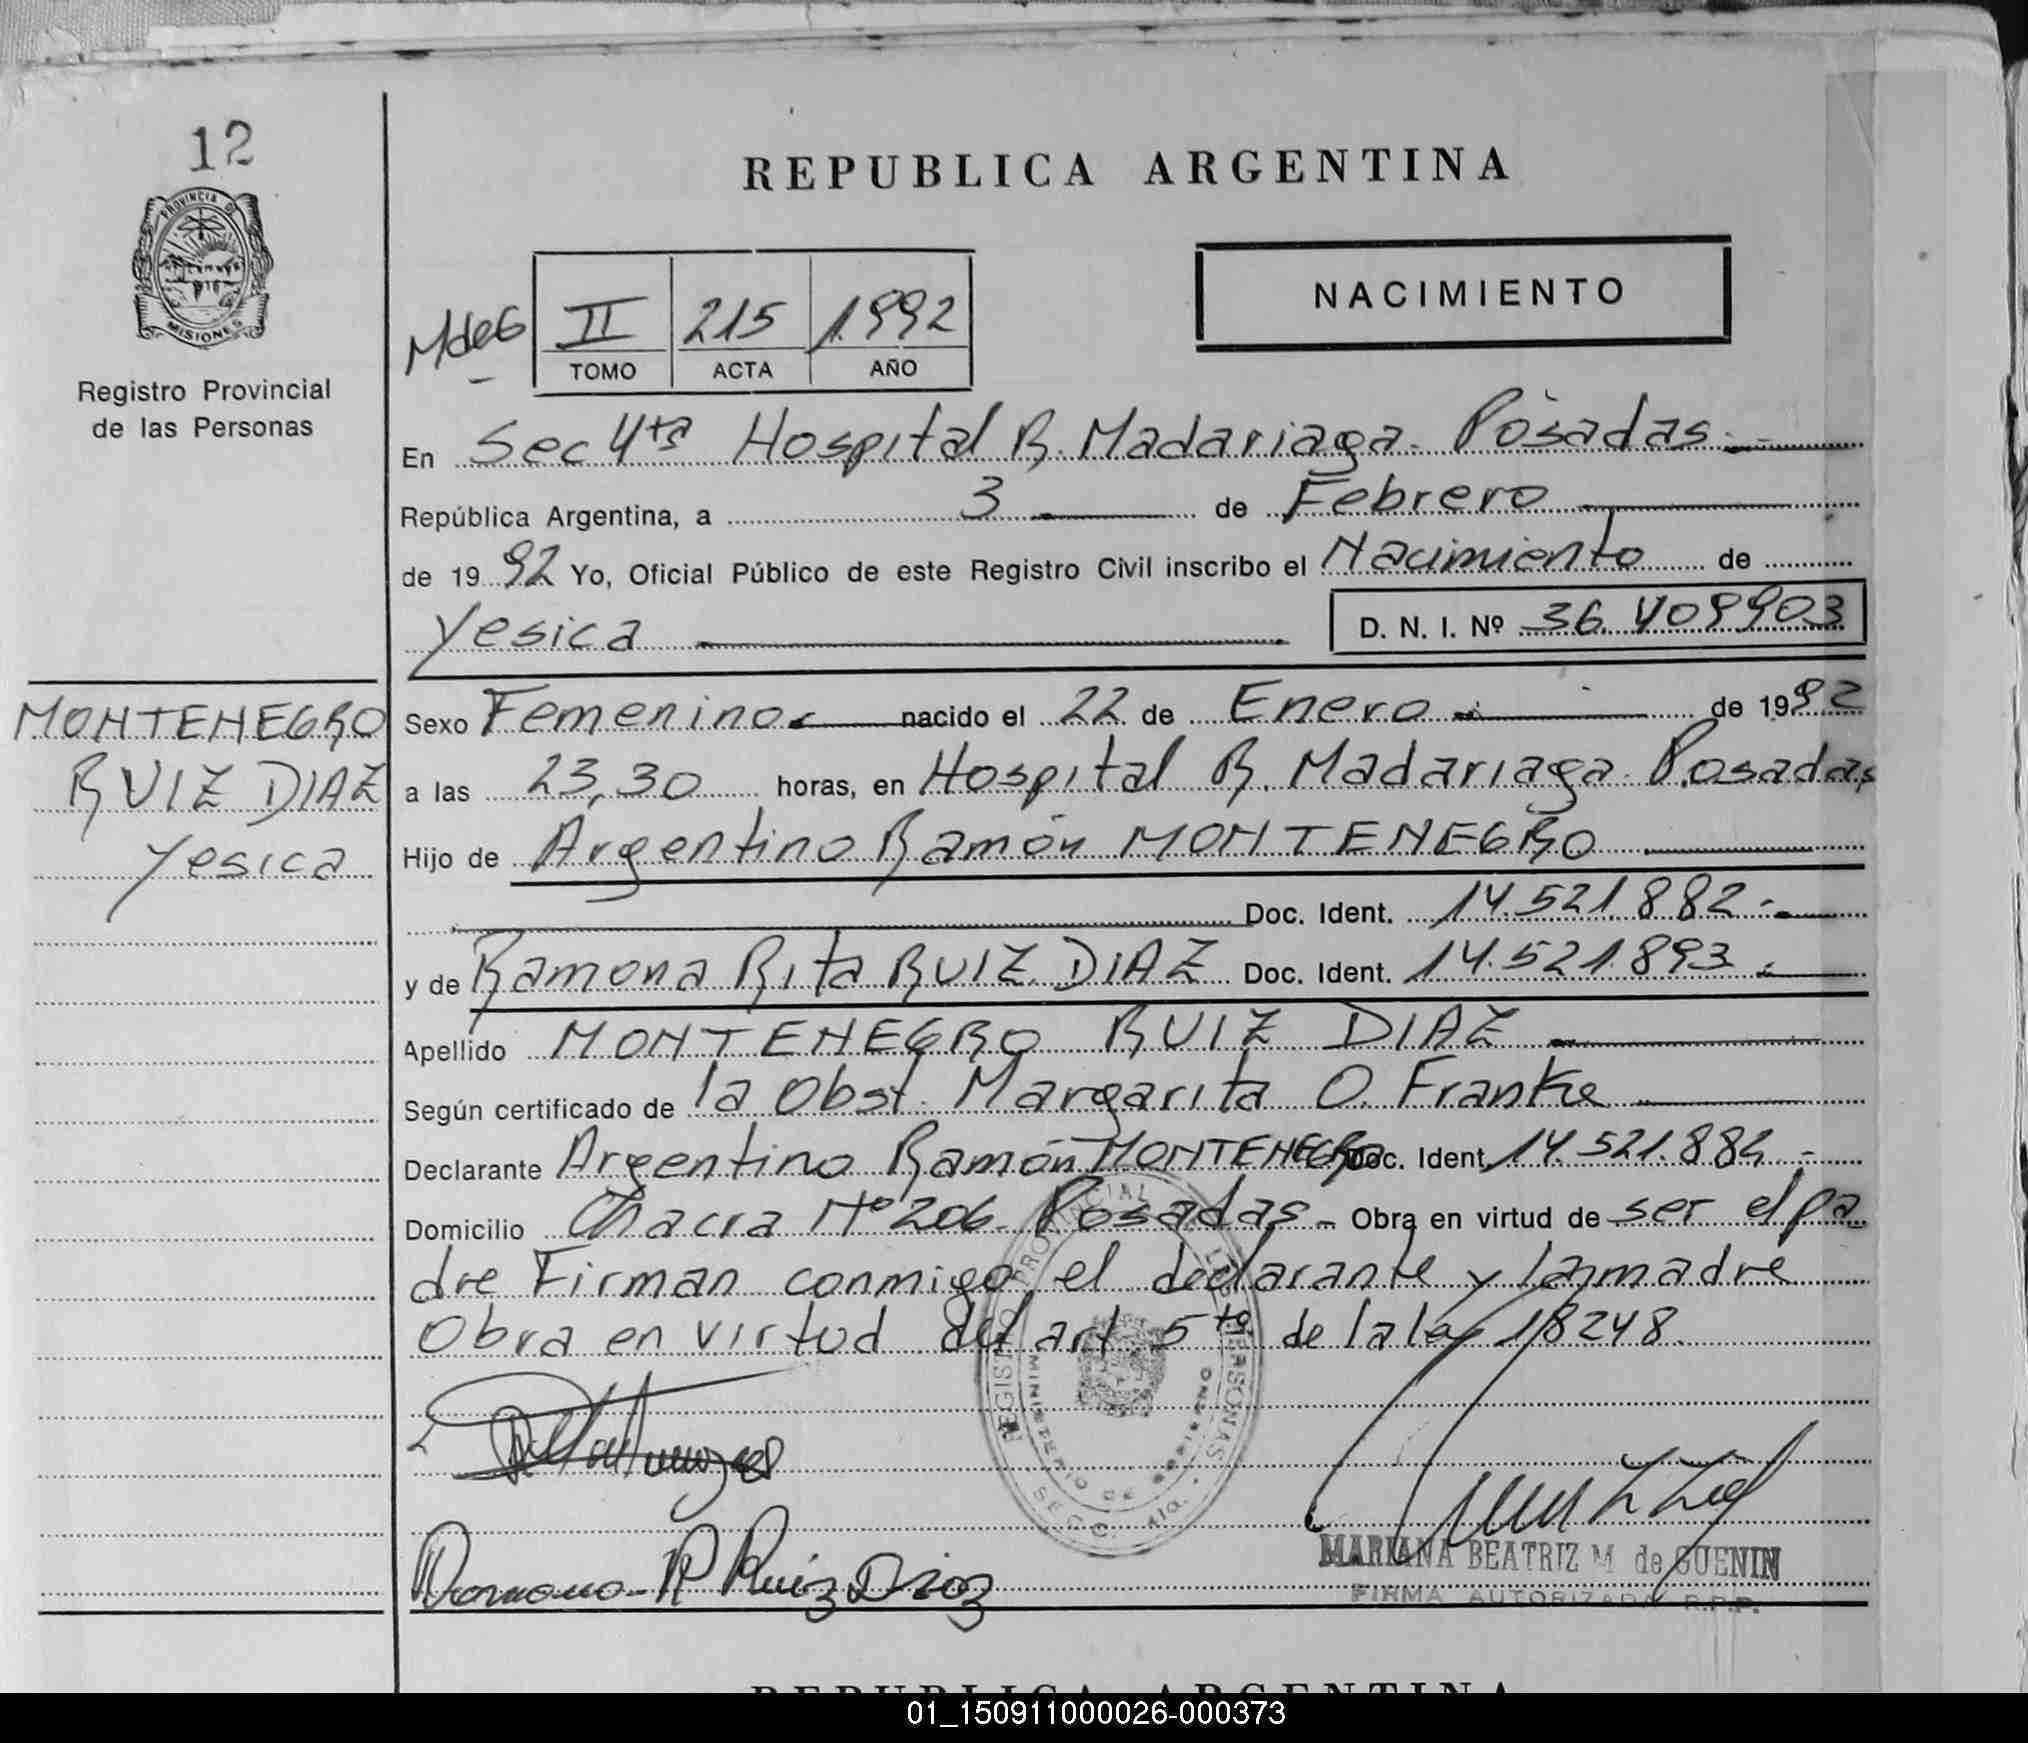 12
PROVINCIA D
MISIONES
Registro Provincial
de las Personas
MONTENEGRO
RUIZ DIAZ
Yesica
REPUBLICA ARGENTINA
NACIMIENTO
MdeG II 215 1.992
TOMO ACTA AÑO
En Sec 4ta Hospital R. Madariaga. Posadas.-
República Argentina, a 3 de Febrero
de 1992 Yo, Oficial Público de este Registro Civil inscribo el Nacimiento de
Yesica D. N. I. Nº 36.409903
Sexo Femenino nacido el 22 de Enero.- de 1992
a las 23,30 horas, en Hospital R. Madariaga. Posadas
Hijo de Argentino Ramón MONTENEGRO
Doc. Ident. 14.521.882.-
y de Ramona Rita RUIZ DIAZ Doc. Ident. 14.521.893.-
Apellido MONTENEGRO RUIZ DIAZ
Según certificado de la Obst. Margarita O. Franke
Declarante Argentino Ramón MONTENEGRO Doc. Ident. 14.521.882.-
Domicilio Chacra Nº 206 Posadas.- Obra en virtud de ser el pa
dre Firman conmigo el declarante y la madre
Obra en virtud del art 5to de la ley 18248.
REGISTRO PROVINCIAL PERSONAS
MINISTERIO DE GOBIERNO
SECC. 4ta.
Ramona R Ruiz Diaz
MARIANA BEATRIZ M de GUENIN
FIRMA AUTORIZADA R.P.P.
REPUBLICA ARGENTINA
01_150911000026-000373